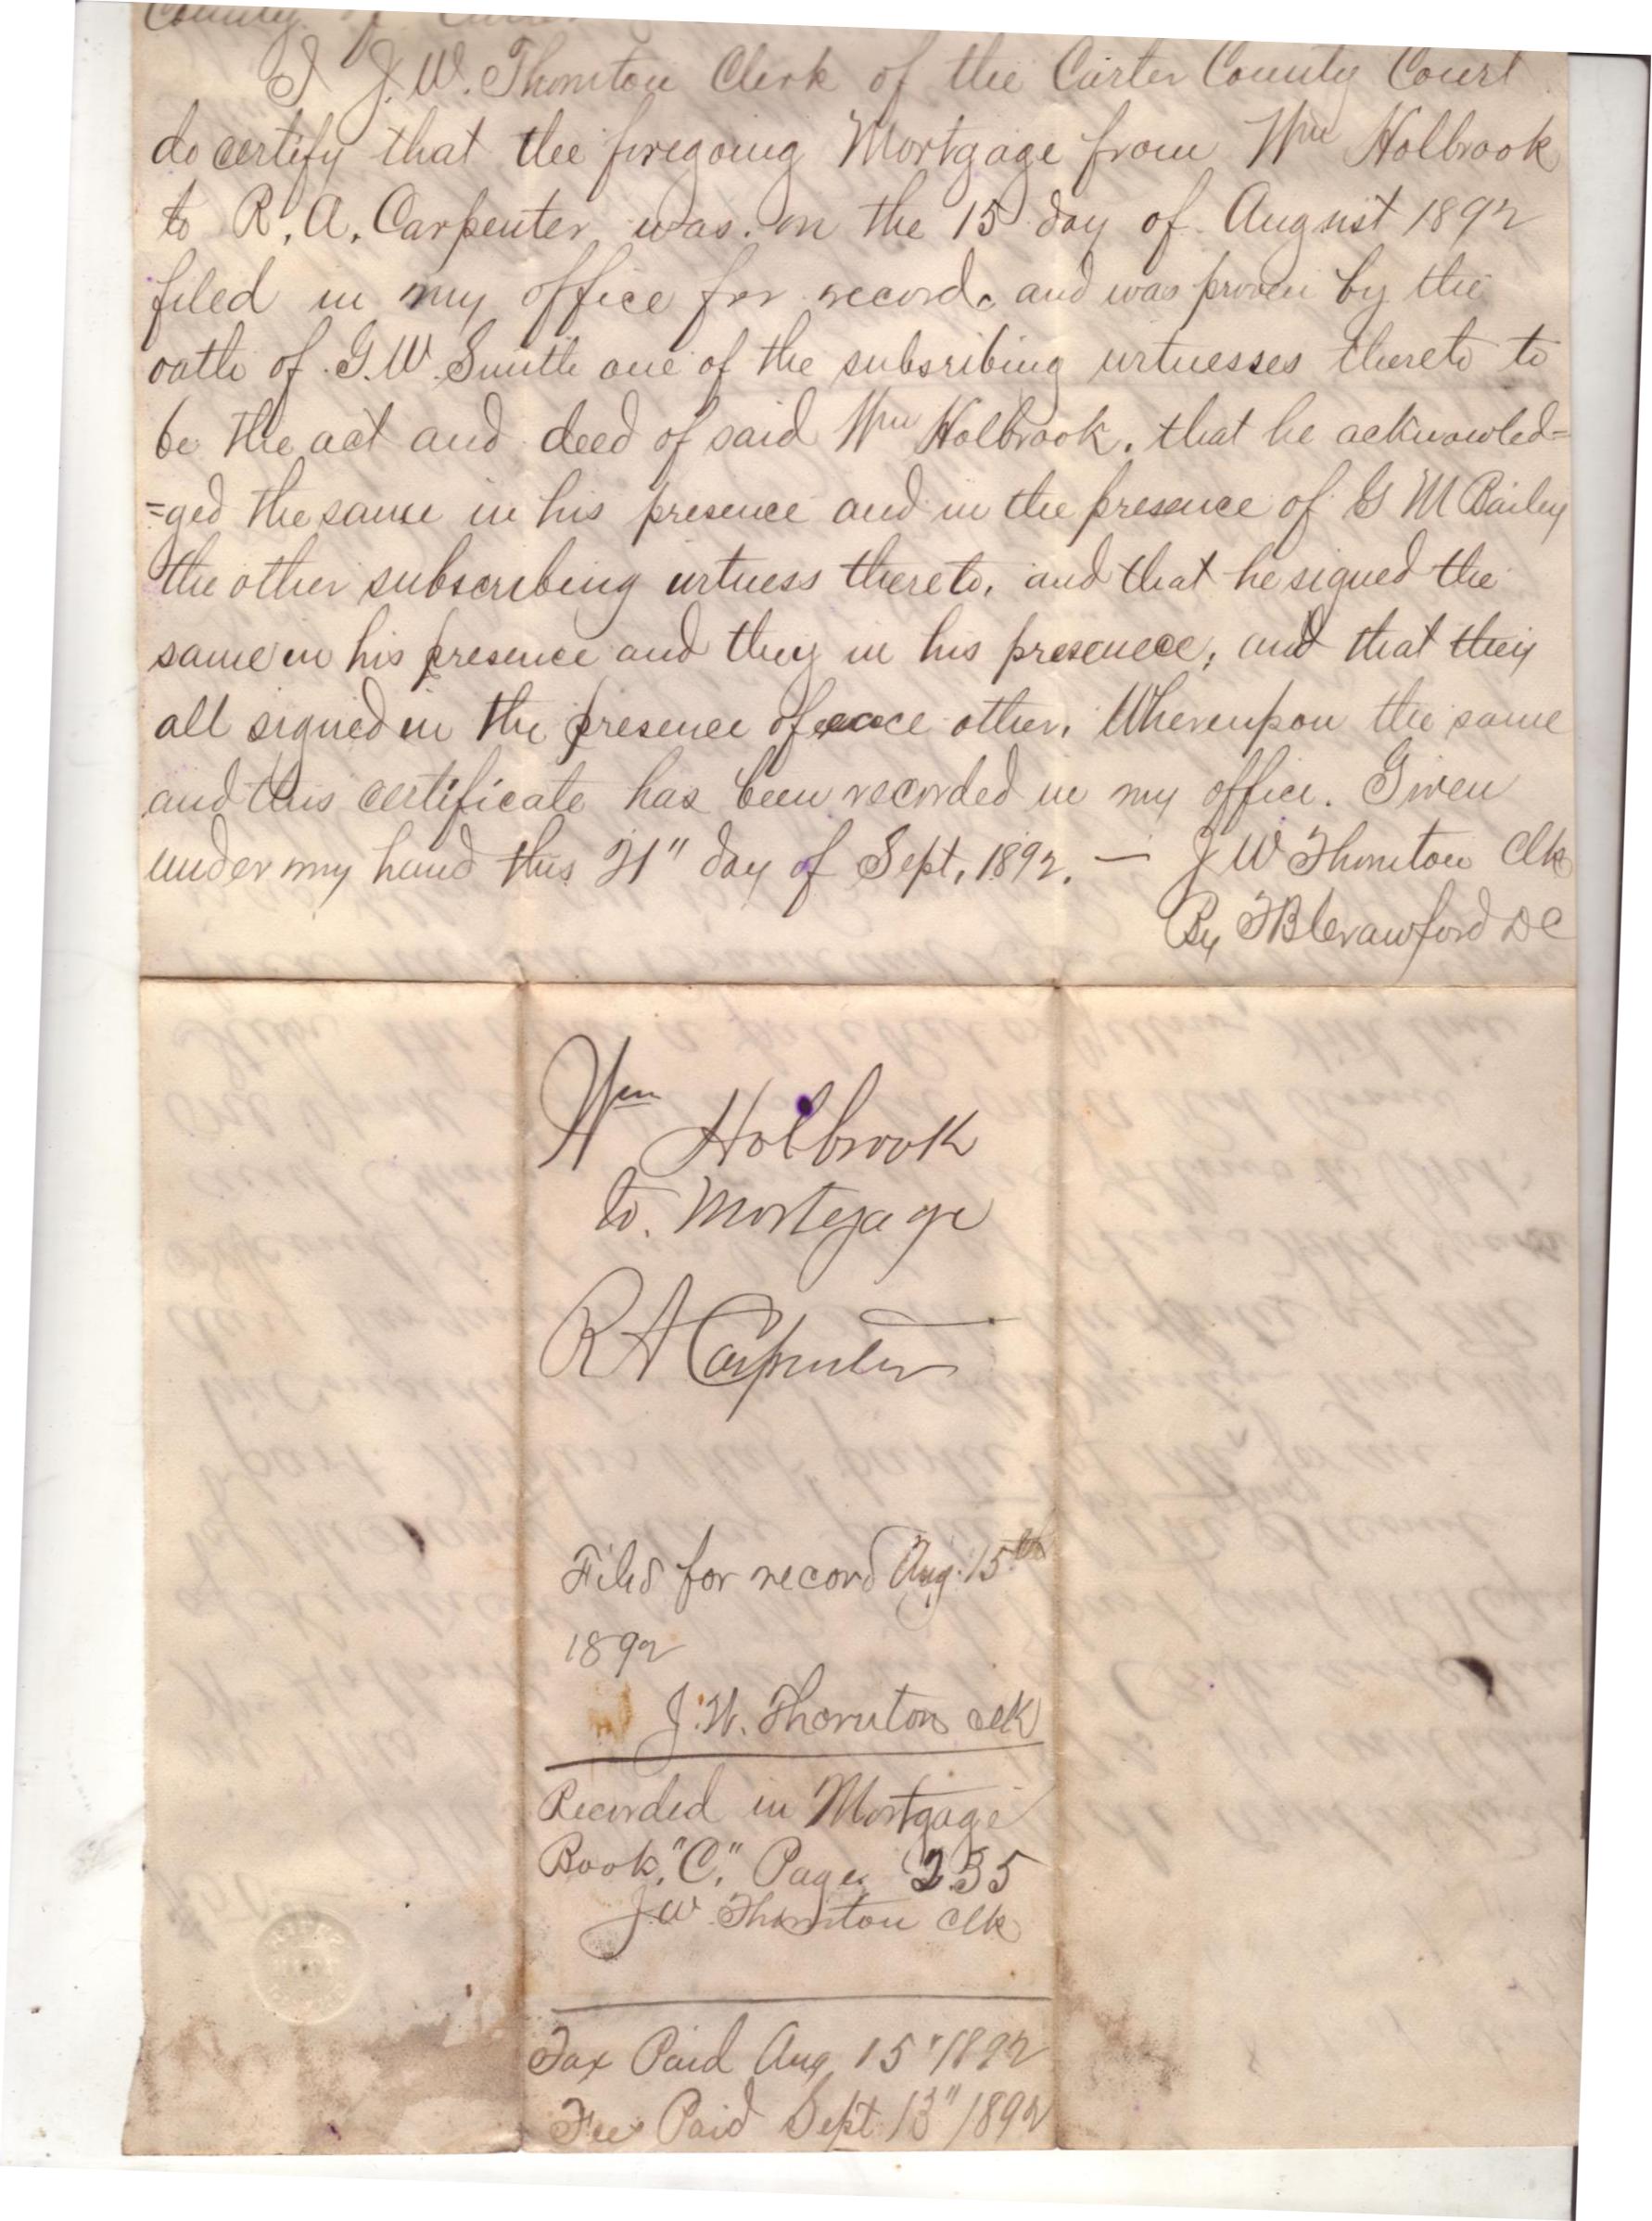 County of Carter
I J. W. Thornton Clerk of the Carter County Court
do certify that the foregoing Mortgage from Wm Holbrook
to R. A. Carpenter was on the 15 day of August 1892
filed in my office for record and was proven by the
oath of G. W. Smith one of the subsribing witnesses thereto to
be the act and deed of said Wm Holbrook, that he acknowled=
=ged the same in his presence and in the presence of G M Bailey
the other subscribing witness thereto, and that he signed the
same in his presence and they in his presence, and that they
all signed in the presence of other. Whereupon the same
and this certificate has been recorded in my office. Given
under my hand this 21" day of Sept, 1892. — J W Thornton Clk
By Crawford DC
Wm Holbrook
to. Mortgage
R A Carpenter
Filed for record Aug. 15th
1892
J. W. Thornton clk
Recorded in Mortgage
Book "C," Page 235
J W Thornton Clk
Tax Paid Aug 15" 1892
Fee Paid Sept 13" 1892